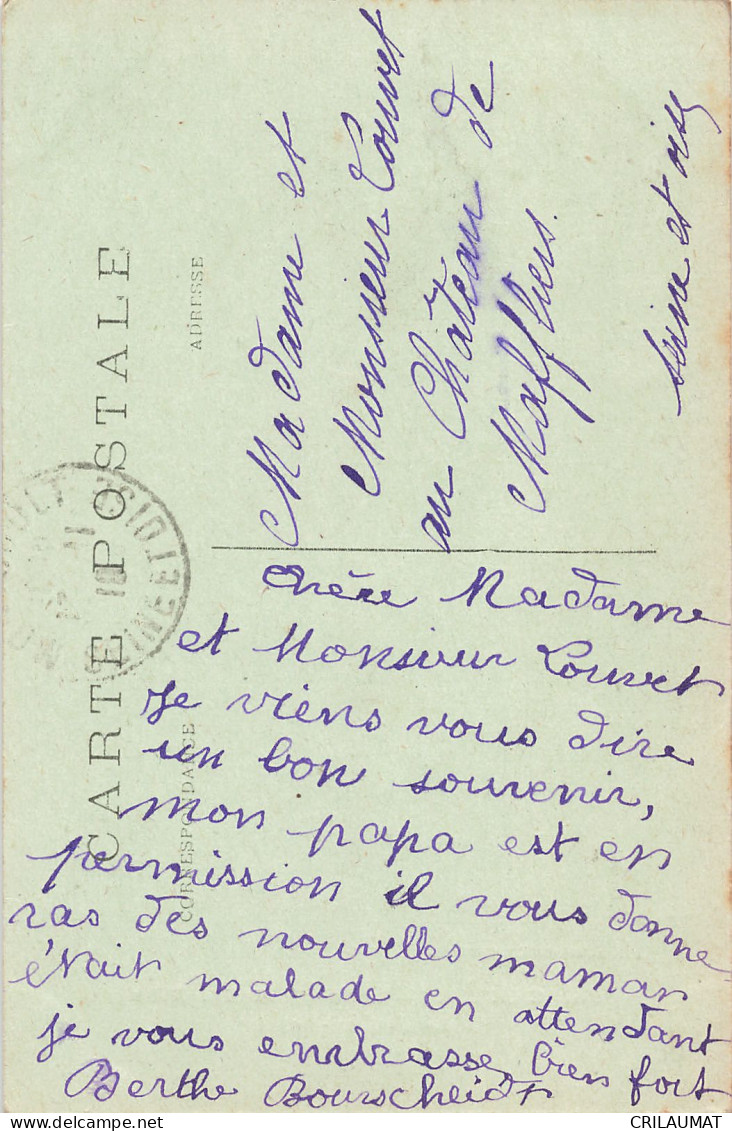 CARTE POSTALE
CORRESPONDANCE
ADRESSE
Madame et
Monsieur Louvet
au Château de
Maffliers.
Seine et oise
Chère Madame
et Monsieur Louvet
Je viens vous dire
un bon souvenir,
mon papa est en
permission il vous donne-
ras des nouvelles maman
était malade en attendant
je vous embrasse bien fort
Berthe Bourscheidt
CRILAUMAT